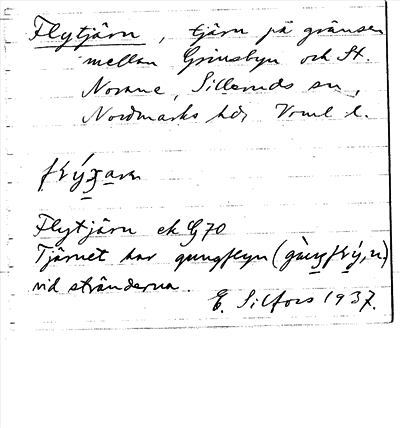 Flytjärn, tjärn på gränsen
mellan Grinsbyn och St.
Norane, Silleruds sn,
Nordmarks hd, Vrml l.
Flytjärn ek G70
Tjärnet har gungflyn
vid stränderna.
E. Silfors 1937.